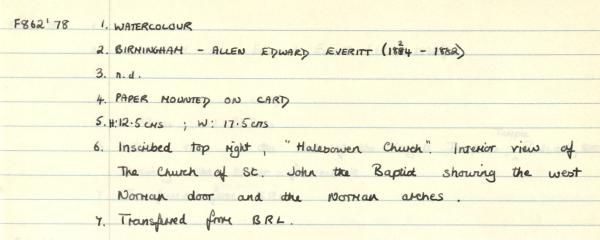 F862'78 1. WATERCOLOUR
2. BIRMINGHAM - ALLEN EDWARD EVERITT (1824 - 1882)
3. n.d.
4. PAPER MOUNTED ON CARD
5. H:12.5 CMS ; W: 17.5 CMS
6. Inscribed top right, "Halesowen Church". Interior view of
The Church of St. John the Baptist showing the west
Norman door and the Norman arches.
7. Transferred from BRL.